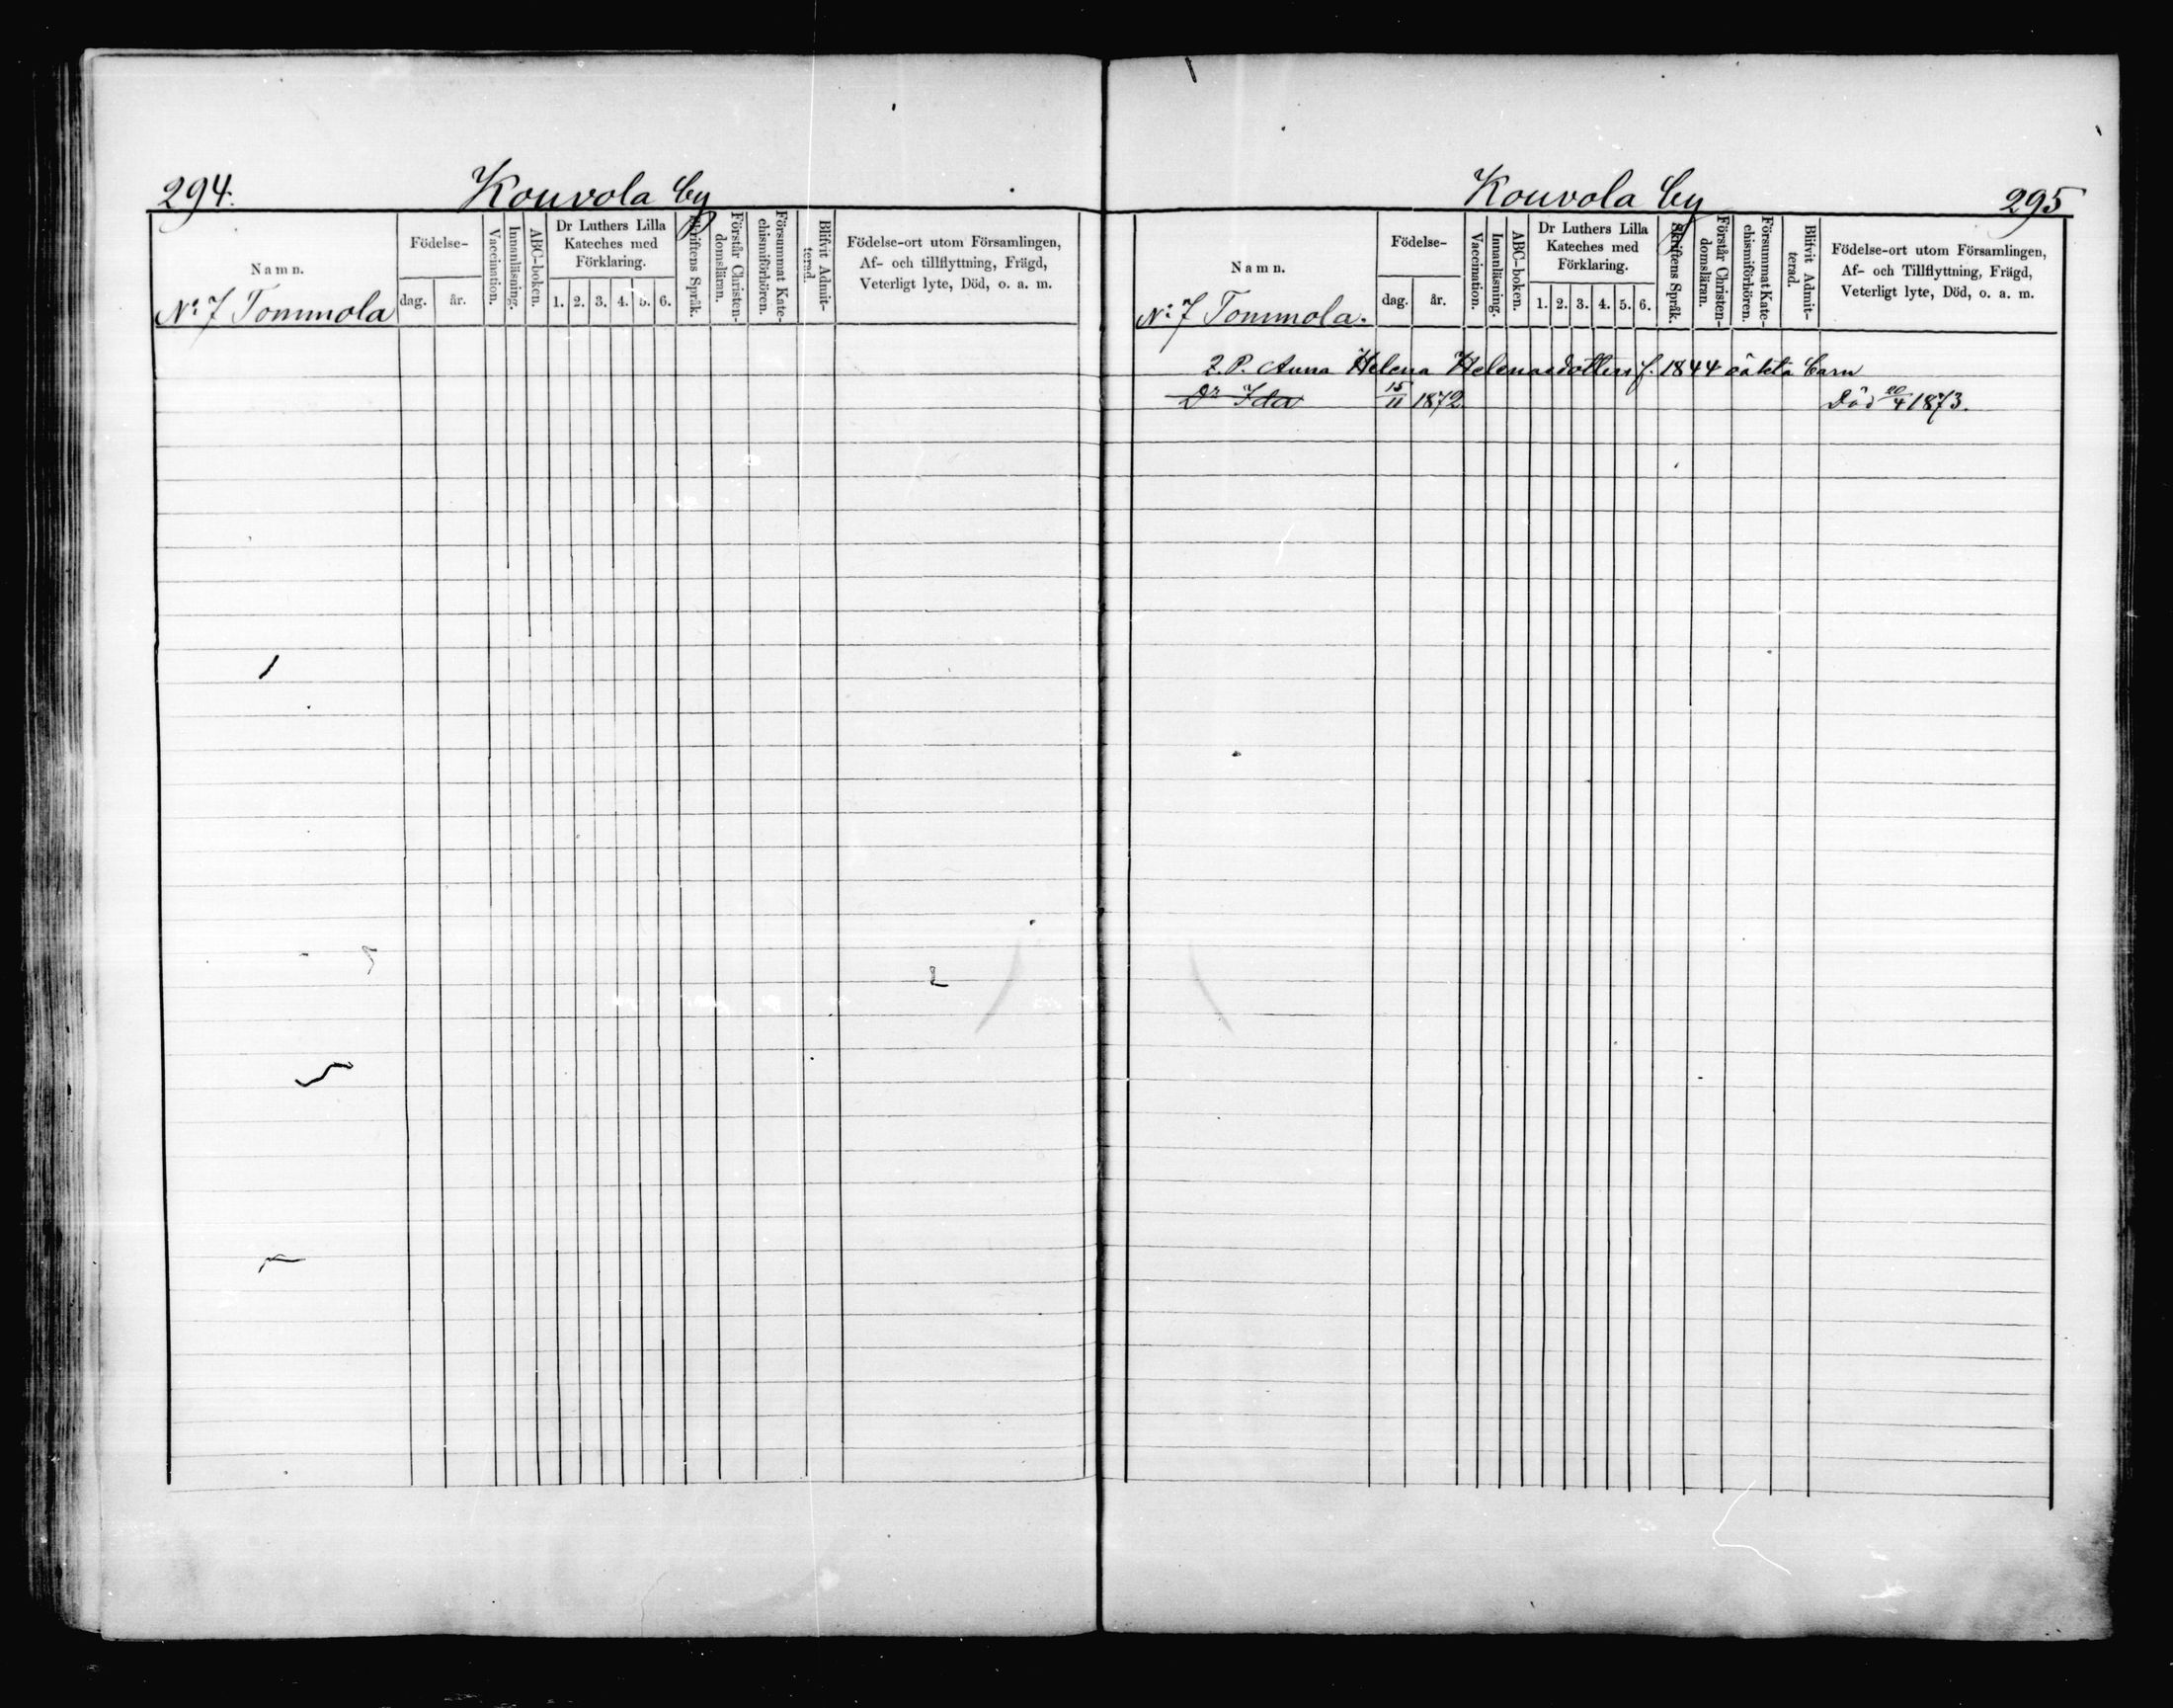 294.
Kouvola by
Namn.
Födelse-
dag.
år.
Vaccination.
Innanläsning.
ABC-boken.
Dr Luthers Lilla
Kateches med
Förklaring.
1. 2. 3. 4. 5. 6.
Skriftens Språk.
Förstår Christen-
domsläran.
Försummat Kate-
chismiförhören.
Blifvit Admit-
terad.
Födelse-ort utom Församlingen,
Af- och tillflyttning, Frägd,
Veterligt lyte, Död, o. a. m.
No: 7 Tommola
Kouvola by
295
Namn.
Födelse-
dag.
år.
Vaccination.
Innanläsning.
ABC-boken.
Dr Luthers Lilla
Kateches med
Förklaring.
1. 2. 3. 4. 5. 6.
Skriftens Språk.
Förstår Christen-
domsläran.
Försummat Kate-
chismiförhören.
Blifvit Admit-
terad.
Födelse-ort utom Församlingen,
Af- och Tillflyttning, Frägd,
Veterligt lyte, Död, o. a. m.
No: 7 Tommola.
Anna Helena Helenasdotters f. 1844 oäkta barn
Dr Ida 15/11 1872 Död 20/4 1873.